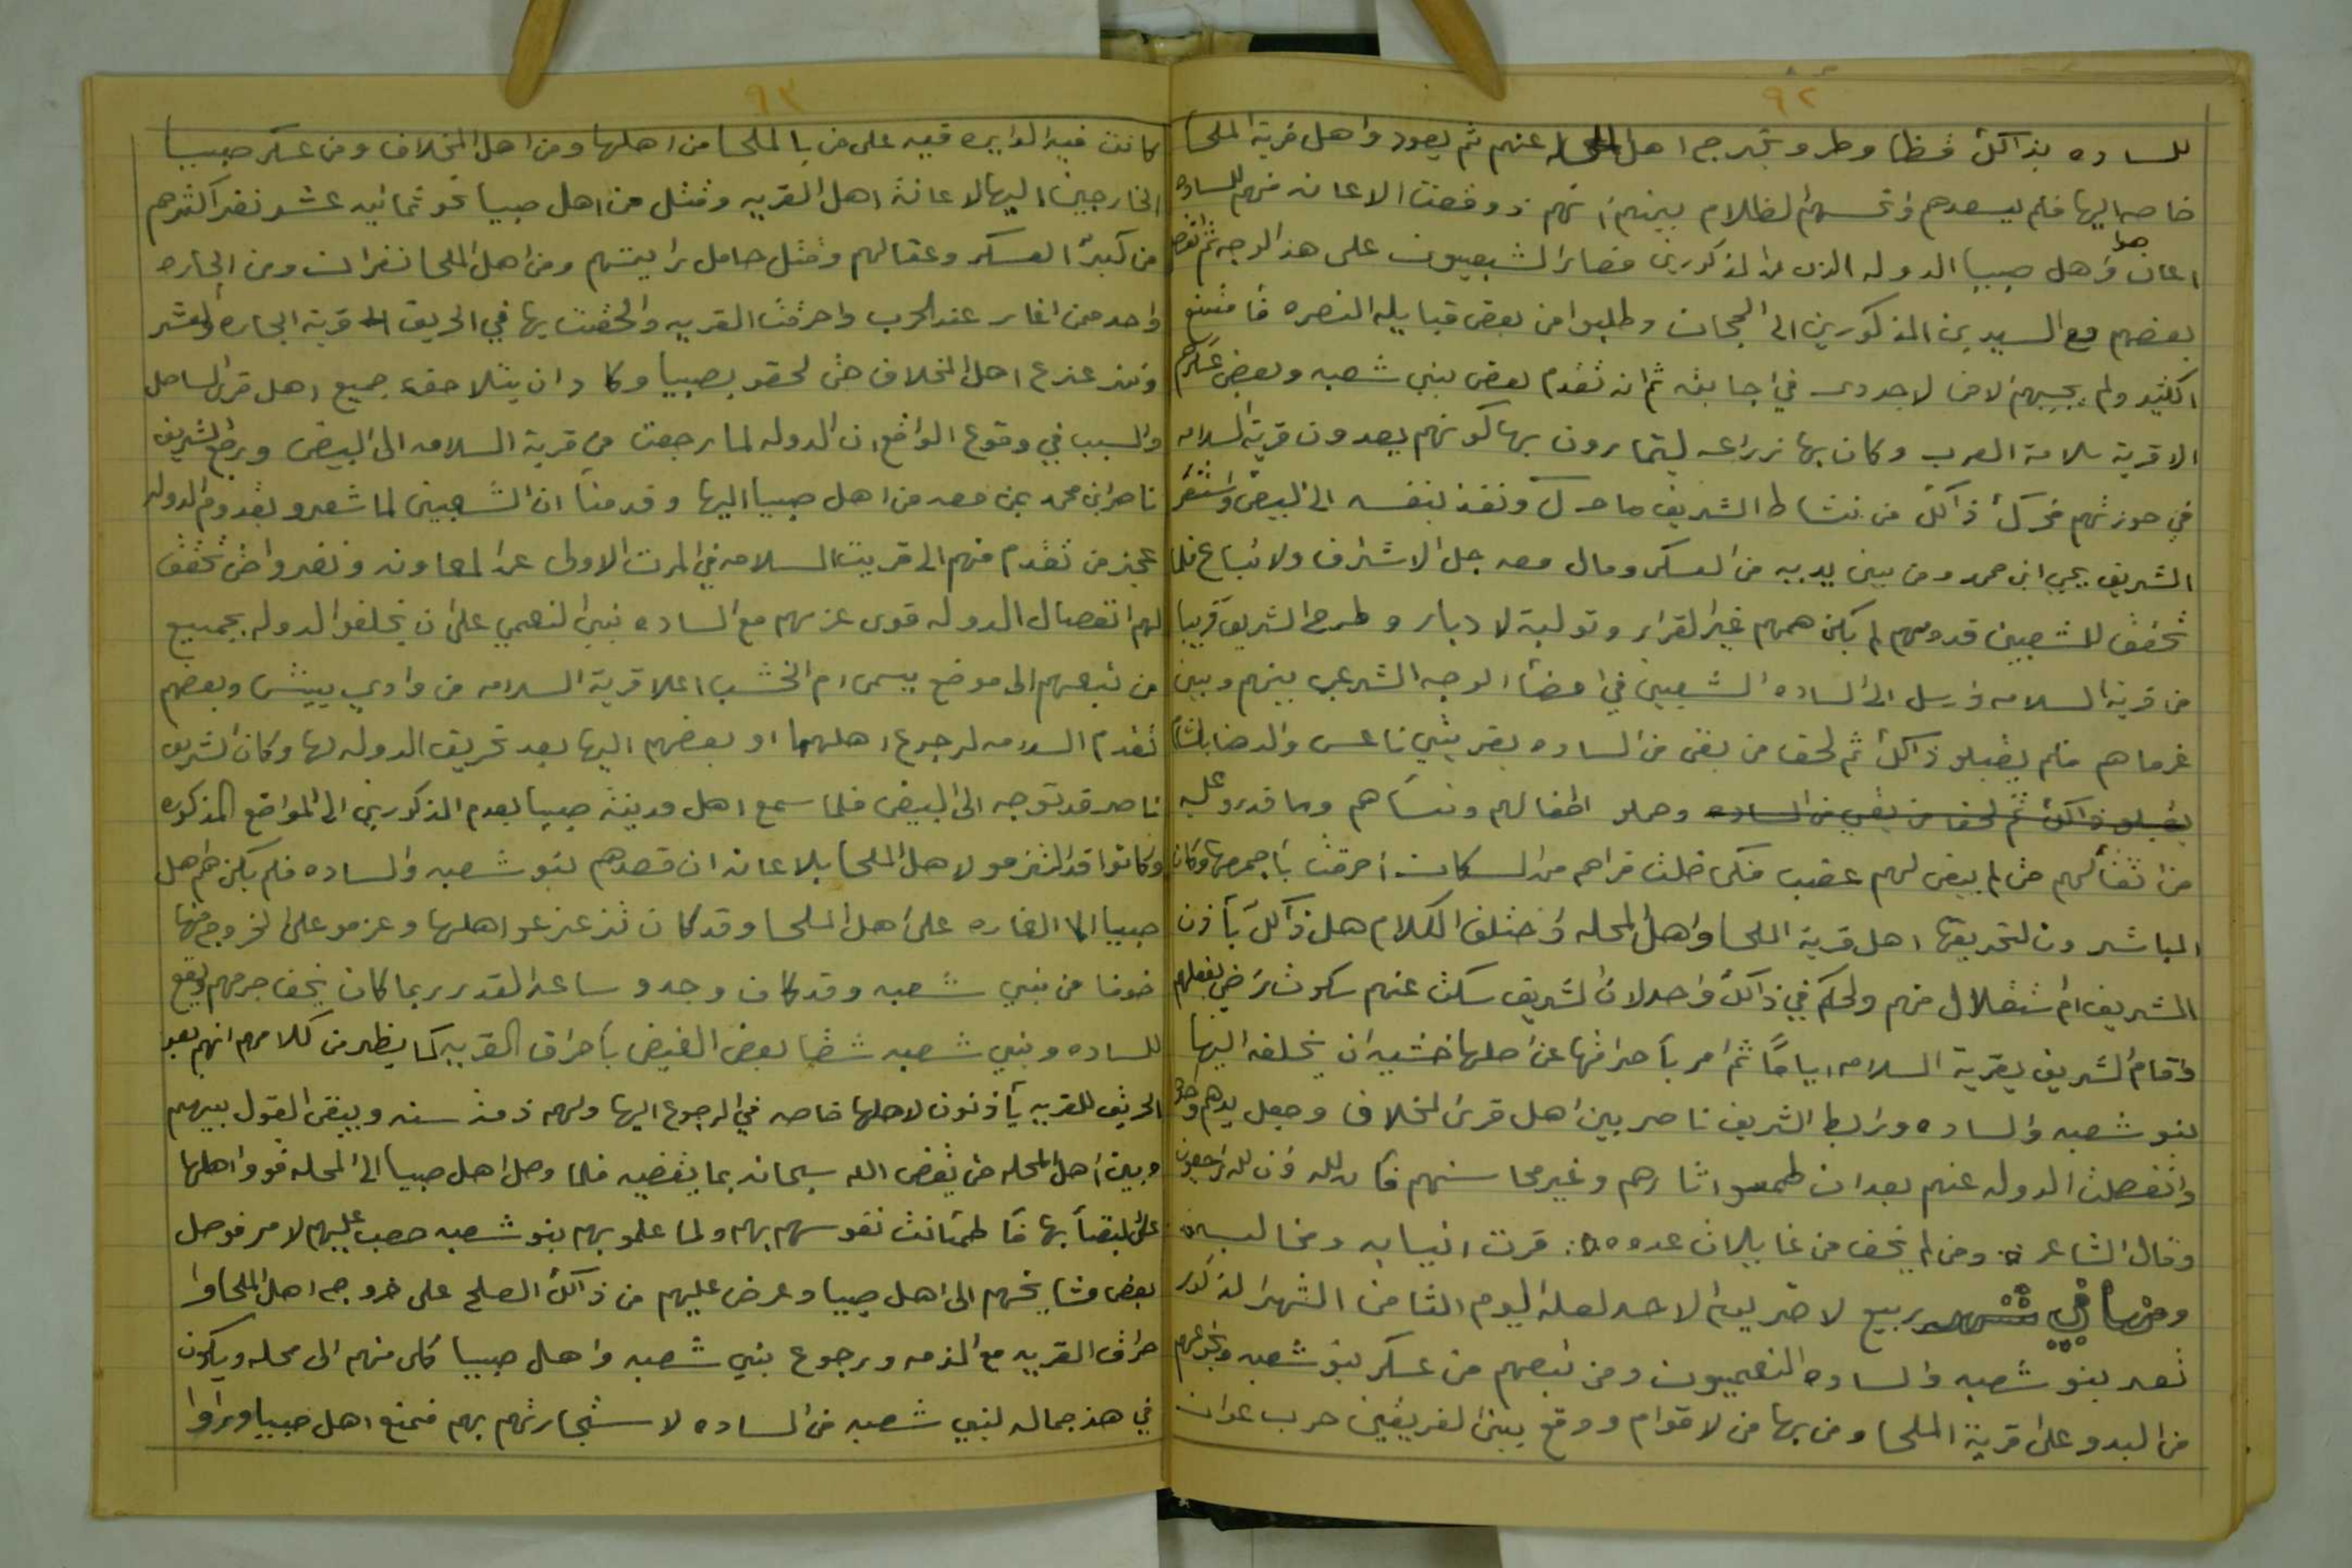 ٩٢
للساده بذاكك فظا وطر وبتخرج اهل المحله عنهم ثم يعود واهل قرية الملحا
خاصه اليها فلم يسعدهم وانحسم الضلام بينهم انهم ذو وقعت الاعانه منهم للساده
اعان هوا واهل صبيا الدوله الذى المذكورين فصار الشعبيون على هذا الوجه ثم نفر
بعضهم مع السيدين المذكورين الى الحجاز وطلبوا من بعض قبايله النصره فامتنع
اكثير ولم يجيبهم الا من لاجدوى في اجابته ثم انه تقدم بعض بنى شعبه وبعض عسكرهم
الا قرية سلامة العرب وكان بها زراعه ليتمارون بها كونهم يعدون قرية السلامه
في حوزتهم فحرك ذاكك من نشاط الشريف ما حرك ونفذ بنفسه الى البيض واستقر
الشريف يحيى ابن محمد ومن بين يديه من العسكر ومال معه جل الاشراف ولاتباع فلما
تحقق للشعبين قدومهم لم يكن همهم غير القرار وتولية لادبار وطرح الشريف قريبا
من قرية السلامه وارسل الى الساده الشعبين في امضأ الوجه الشرعي بينهم وبين
غرماهم فلم يقبلو ذاكك ثم لحق من بقى من الساده بقريتي ناعس والدهنا بلشأ
يقبلو ذاكك ثم لحق من بقي من الساده وحملو اطفالهم ونسأهم وما قدرو عليه
من اثقالهم حتى لم يبقى لهم عقب فكى خلت قراهم من السكان احرقت بأجمعها وكان
المباشرون لتحريقها اهل قرية الملحا واهل المحله واختلف الكلام هل ذاكك بأذن
الشريف ام استقلال منهم ولحكم في ذاكك واحد لان الشريف سكت عنهم سكوت راضي بفعلهم
واقام الشريف بقرية السلامه اياماً ثم امر بأحراقها عن اصلها خشية ان يخلفه اليها
بنو شعبه والساده ورابط الشريف ناصر بين اهل قرى المخلاف وجعل يدهم واحده
وانفصلت الدوله عنهم بعد ان طمسو اثارهم وغير محاسنهم فأن لله وان لله راجعون
وقال الشاعر ومن لم يخف من غايلات عدوه قرت انيابه ومخالبه
ومنها في شهر ربيع لاخر يوم الاحد لعله اليوم الثامن الشهر المذكور
نعد بنو شعبه والساده النعميون ومن تبعهم من عسكر بنو شعبه ونحوعهم
من البدو على قرية الملحا ومن بها من لاقوام ووقع بين الفريقين حرب عوان
٩٣
كانت فيه الدايره فيه على من بالملحا من اهلها ومن اهل المخلاف ومن عسكر صبيا
الخارجين اليها لاعانة اهل القريه وقتل من اهل صبيا نحو ثمانيه عشر نفر اكثرهم
من كبرأ العسكر وعقالهم وقتل حامل رايتهم ومن اهل الملحا نفران ومن الجاره
واحد ممن اغار عند الحرب واحرقت القريه والحقت بها في الحريق قرية الجاره وانتشر
وتزعزع اهل المخلاف حتى لحقو بصبيا وكاد ان يتلاحق جميع اهل قرى الساحل
والسبب في وقوع الواقع ان الدوله لما رجعت من قرية السلامه الى البيض ورفع الشريف
ناصر ابن محمد بمن معه من اهل صبيا اليها وقدمنا ان الشعبين لما شعرو بقدوم الدوله
عجز من تقدم منهم الى قريت السلامه في المرت الاولى عن المعاونه ونفرواحتى تحقق
لهم انفصال الدوله قوى عزمهم مع الساده بنى النعمي على ان يخلفو الدوله بجميع
من تبعهم الى موضع يسمى ام الخشب اعلا قرية السلامه من وادي بيش وبعضهم
تقدم السلامه لرجوع اهلها او بعضهم اليها بعد تحريق الدوله لها وكان الشريف
ناصر قد توجه الى البيض فلما سمع اهل مدينة صبيا بعدم المذكورين الى المواضع المذكوره
وكانوا قد التزمو لاهل الملحا بلاعانه ان قصدهم بنو شعبه والساده فلم يكن هم اهل
صبيا الا الغاره على اهل الملحا وقد كان تزعزعو اهلها وعزمو على الخروج منها
خوفا من بني شعبه وقد كان وجدو ساعد القدر ربما كان يخف جرمهم ويقع
للساده وبني شعبه شفا بعض الغيض بأحراق القريه كما يظهر من كلامهم انهم بعد
الحريق للقريه يأذنون لاهلها خاصه في الرجوع اليها ولهم ذمة سنه ويبقى القول بينهم
وبين اهل المحله حتى يقضى الله سبحانه بما يقضيه فلما وصل اهل صبيا الى المحله قووا اهلها
على البقأ بها فأطمئانت نفوسهم بهم ولما علمو بهم بنو شعبه صعب عليهم لامر فوصل
بعض مشايخهم الى اهل صبيا وعرض عليهم من ذاكك الصلح على خروجه اهل الملحا وا
حراق القريه مع الذمه ورجوع بني شعبه واهل صبيا كلى منهم الى محله ويكون
في هذ جماله لبني شعبه من الساده لاستجارتهم بهم فمنع اهل صبيا وراوا